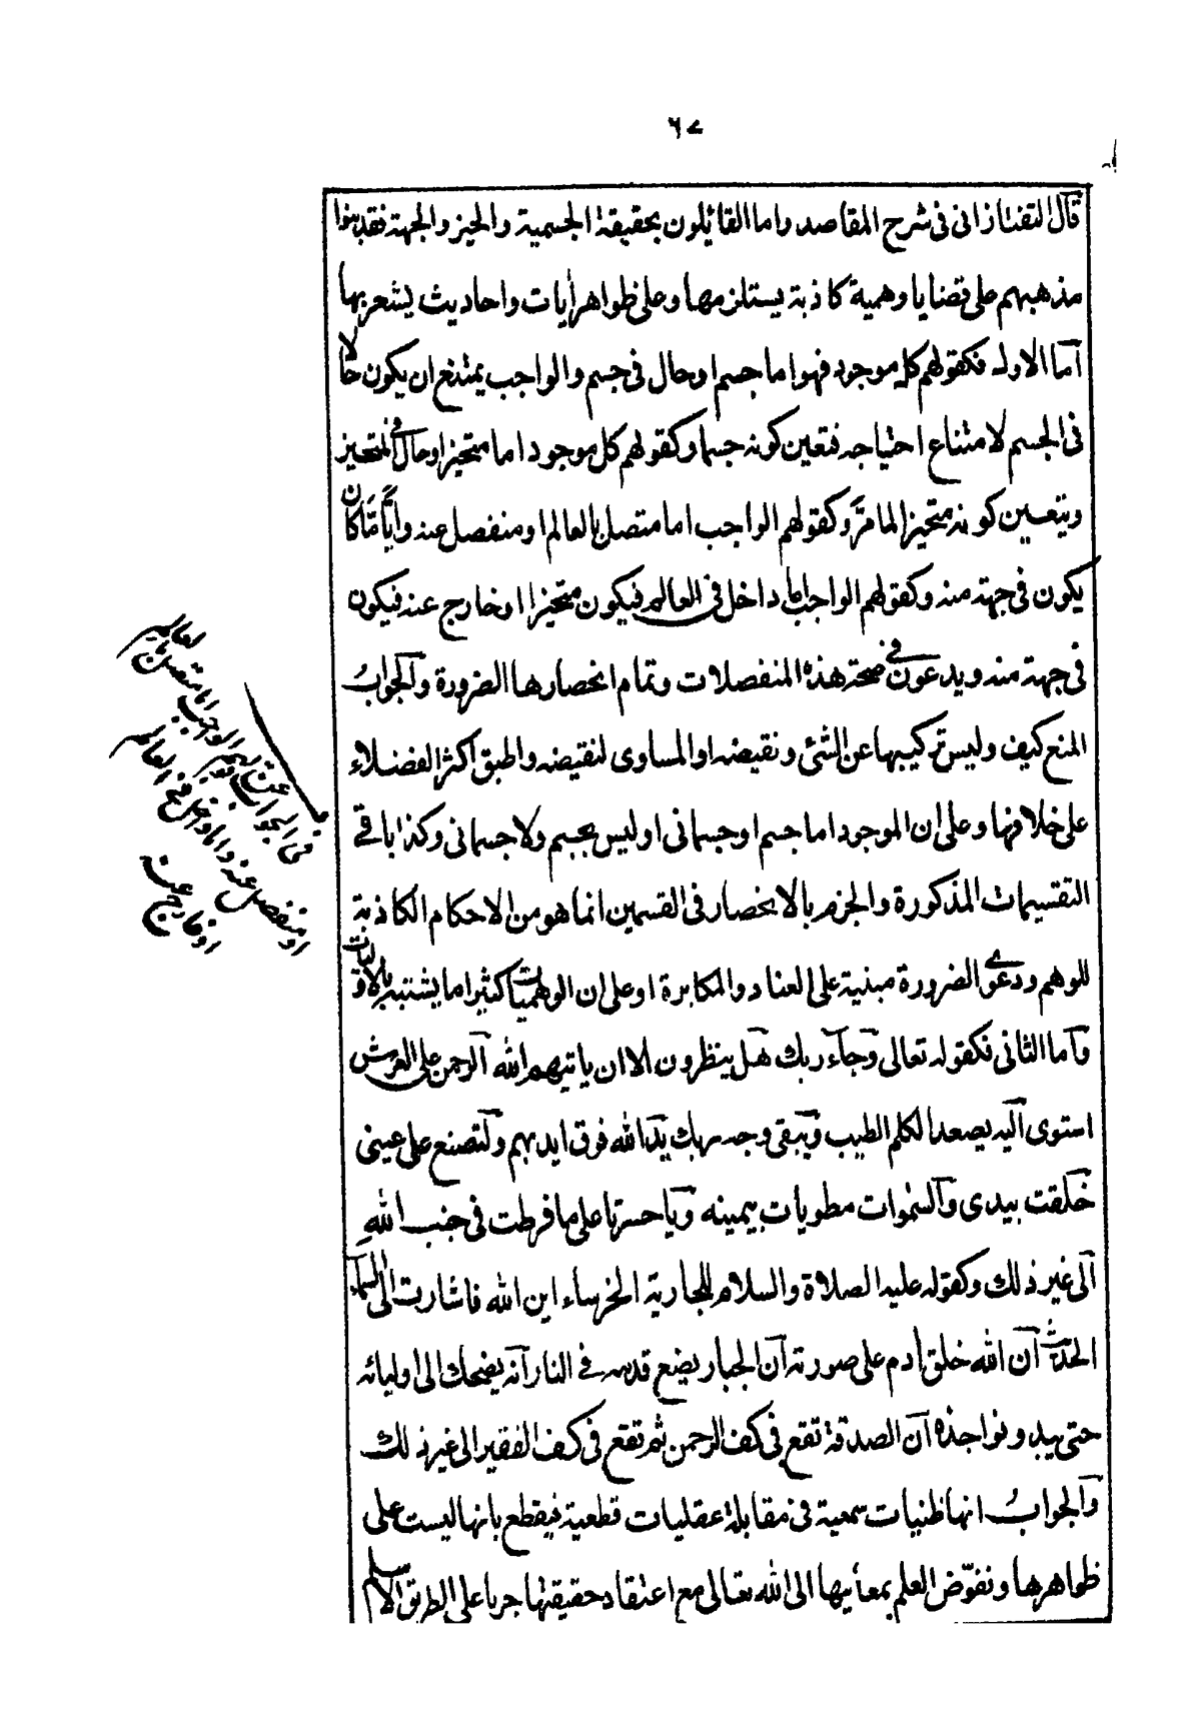 ٦٧
قال التفتازانى فى شرح المقاصد واما القائلون بحقيقة الجسمية والحيز والجهة فقد بنوا
مذهبهم على قضايا وهمية كاذبة يستلزمها وعلى ظواهر أيات واحاديث يشعر بها
آما الاول فكقولهم كل موجود فهو اما جسم او حال فى جسم والواجب يمتنع ان يكون حالا
فى الجسم لامتناع احتياجه فتعين كونه جسما وكقولهم كل موجود اما متحيز او حال فى المتحيز
ويتعين كونه متحيزا لما مرّ وكقولهم الواجب اما متصل بالعالم او منفصل عنه وأيًّا مّا كان
يكون فى جهة منه وكقولهم الواجب اما داخل فى العالم فيكون متحيزا او خارج عنه فيكون
فى جهة منه ويدعون فى صحة هذه المنفصلات وتمام انحصارها الضرورة والجوابُ
المنع كيف وليس تركيبها عن الشئ ونقيضه او المساوى لنقيضه واطبق اكثر الفضلاء
على خلافها وعلى ان الموجود اما جسم او جسمانى او ليس بجسم ولا جسمانى وكذا باقى
التقسيمات المذكورة والجزم بالانحصار فى القسمين انما هو من الاحكام الكاذبة
للوهم ودعوى الضرورة مبنية على العناد والمكابرة او على ان الوهميات كثيرا ما يشتبه بالاوليات
وآما الثانى فكقوله تعالى وجآء ربك هل ينظرون الا ان ياتيهم الله الرحمن على العرش
استوى آليه يصعد الكلم الطيب ويبقى وجه ربك يد الله فوق ايديهم ولتصنع على عينى
خلقت بيدى والسموات مطويات بيمينه ويا حسرتا على ما فرطت فى جنب اللهِ
آلى غير ذلك وكقوله عليه الصلاة والسلام للجارية الخرساء اين الله فاشارت الى السمآء
الحديث آن الله خلق أدم على صورته آن الجبار يضع قدمه فى النار آنه يضحك الى اوليائه
حتى يبدو نواجذه آن الصدقة تقع فى كف الرحمن ثم تقع فى كف الفقير الى غير ذلك
والجوابُ انها ظنيات سمعية فى مقابلة عقليات قطعية فيقطع بانها ليست على
ظواهرها ونفوّض العلم بمعانيها الى الله تعالى مع اعتقاد حقيقتها جريا على الطريق الاسلم
فى الجواب عن قولهم الواجب اما متصل بالعالم
او منفصل عنه واما داخل فى العالم
او خارج عنه